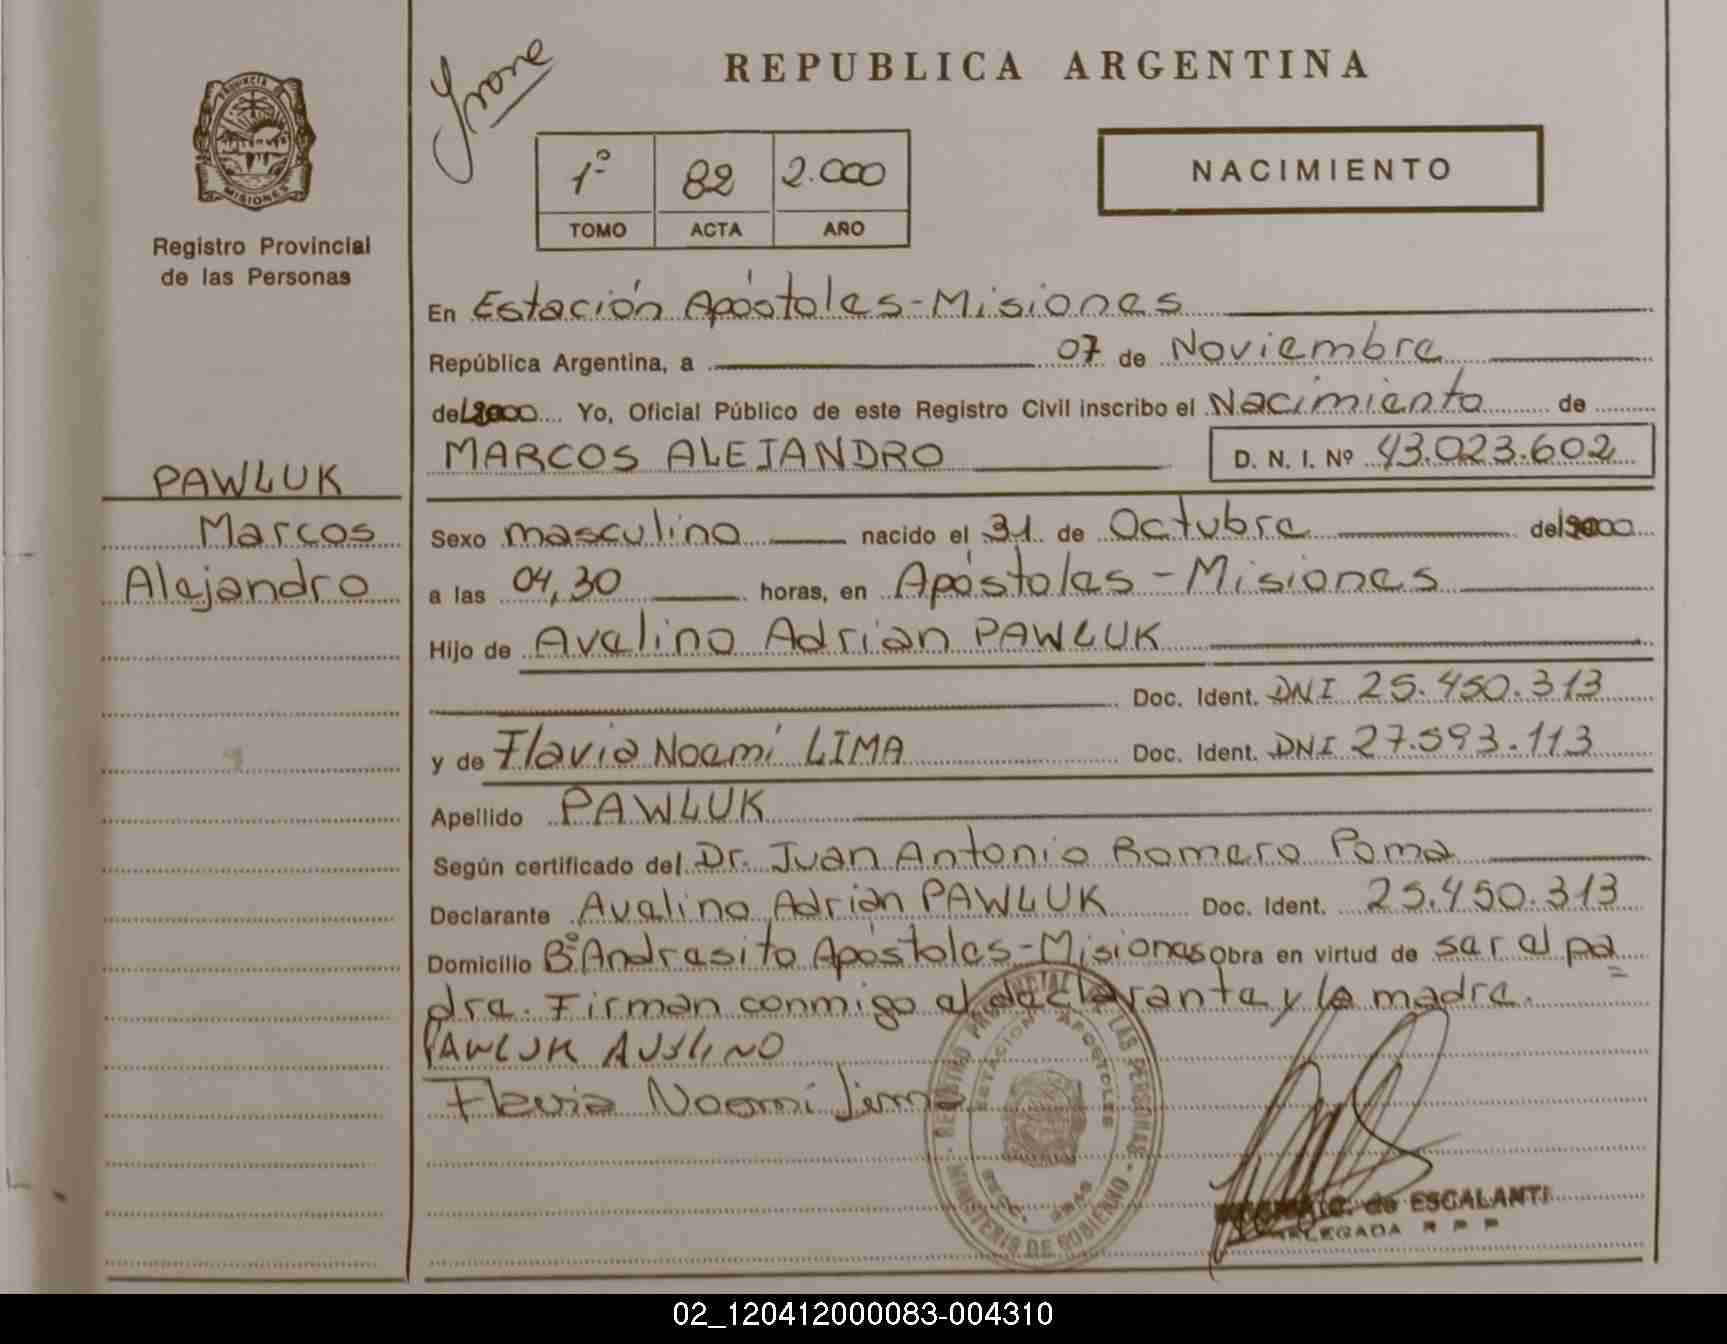 Irene
REPUBLICA ARGENTINA
PROVINCIA DE
MISIONES
1º 82 2.000
TOMO ACTA AÑO
NACIMIENTO
Registro Provincial
de las Personas
En Estación Apóstoles - Misiones
República Argentina, a 07 de Noviembre
del 2000 Yo, Oficial Público de este Registro Civil inscribo el Nacimiento de
MARCOS ALEJANDRO D. N. I. Nº 43.023.602
PAWLUK
Marcos
Alejandro
Sexo masculino nacido el 31 de Octubre del 2000
a las 04,30 horas, en Apóstoles - Misiones
Hijo de Avelino Adrian PAWLUK
Doc. Ident. DNI 25.450.313
y de Flavia Noemí LIMA Doc. Ident. DNI 27.593.113
Apellido PAWLUK
Según certificado del Dr. Juan Antonio Romero Poma
Declarante Avelino Adrián PAWLUK Doc. Ident. 25.450.313
Domicilio Bº Andresito Apóstoles - Misiones obra en virtud de ser el pa
dre. Firman conmigo el declarante y la madre.
PAWLUK AVELINO
Flavia Noemí Lima
REGISTRO PROVINCIAL DE LAS PERSONAS
ESTACION APOSTOLES
MINISTERIO DE GOBIERNO
C. de ESCALANTE
DELEGADA R P P
02_120412000083-004310